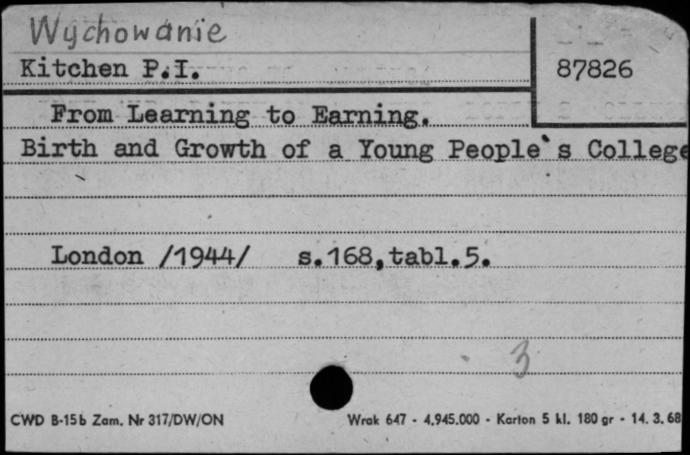 Wychowanie
Kitchen P.I.
87826
From Learning to Earning.
Birth and Growth of a Young People`s College
London /1944/ s.168,tabl.5.
3
CWD B-15b Zam. Nr 317/DW/ON
Wrak 647 - 4.945.000 - Karton 5 kl. 180 gr - 14. 3. 68